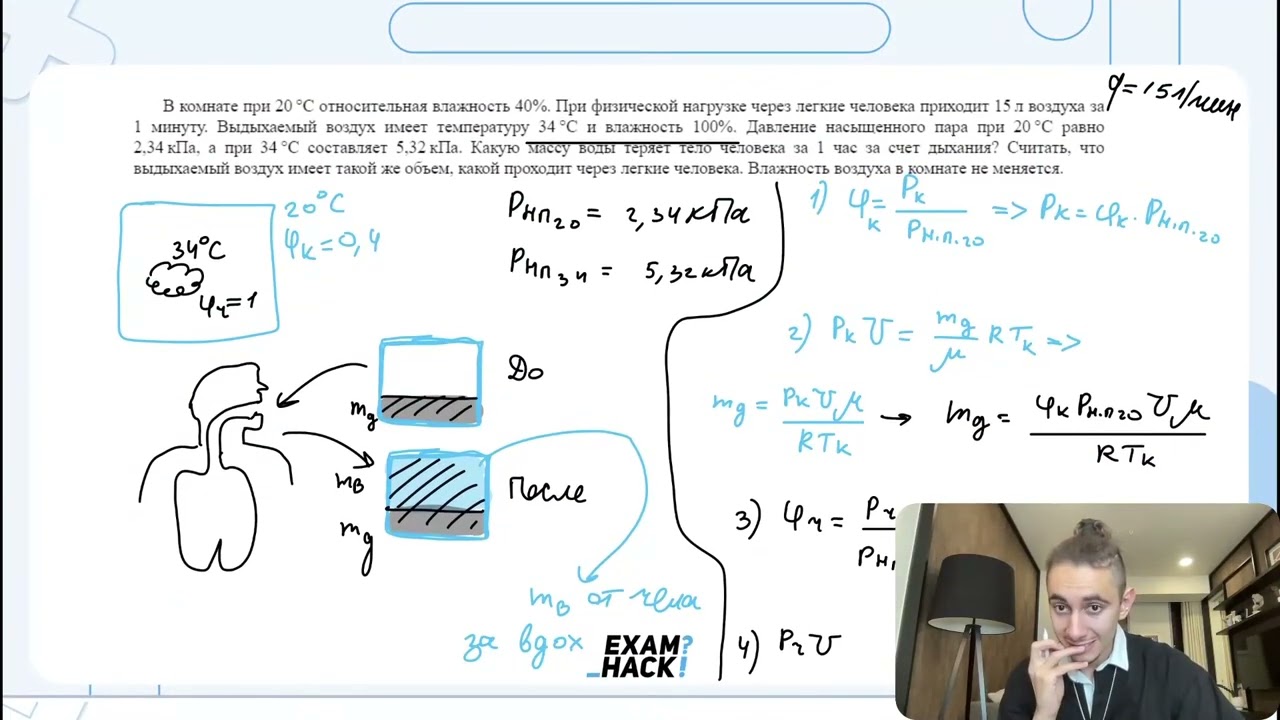 q = 15 л/мин
В комнате при 20 °C относительная влажность 40%. При физической нагрузке через легкие человека приходит 15 л воздуха за
1 минуту. Выдыхаемый воздух имеет температуру 34 °C и влажность 100%. Давление насыщенного пара при 20 °C равно
2,34 кПа, а при 34 °C составляет 5,32 кПа. Какую массу воды теряет тело человека за 1 час за счет дыхания? Считать, что
выдыхаемый воздух имеет такой же объем, какой проходит через легкие человека. Влажность воздуха в комнате не меняется.
20°C
φк = 0,4
34°C
φч = 1
Pнп20 = 2,34 кПа
Pнп34 = 5,32 кПа
До
mg
mв
mg
После
mв от чела
за вдох
EXAM?
_HACK!
1) φк = Pк / Pн.п.20 => Pк = φк · Pн.п.20
2) Pк V = mg / μ R Tк =>
mg = Pк V μ / R Tк → mg = φк Pн.п20 V μ / R Tк
3) φч = Pч / Pнп
4) Pч V